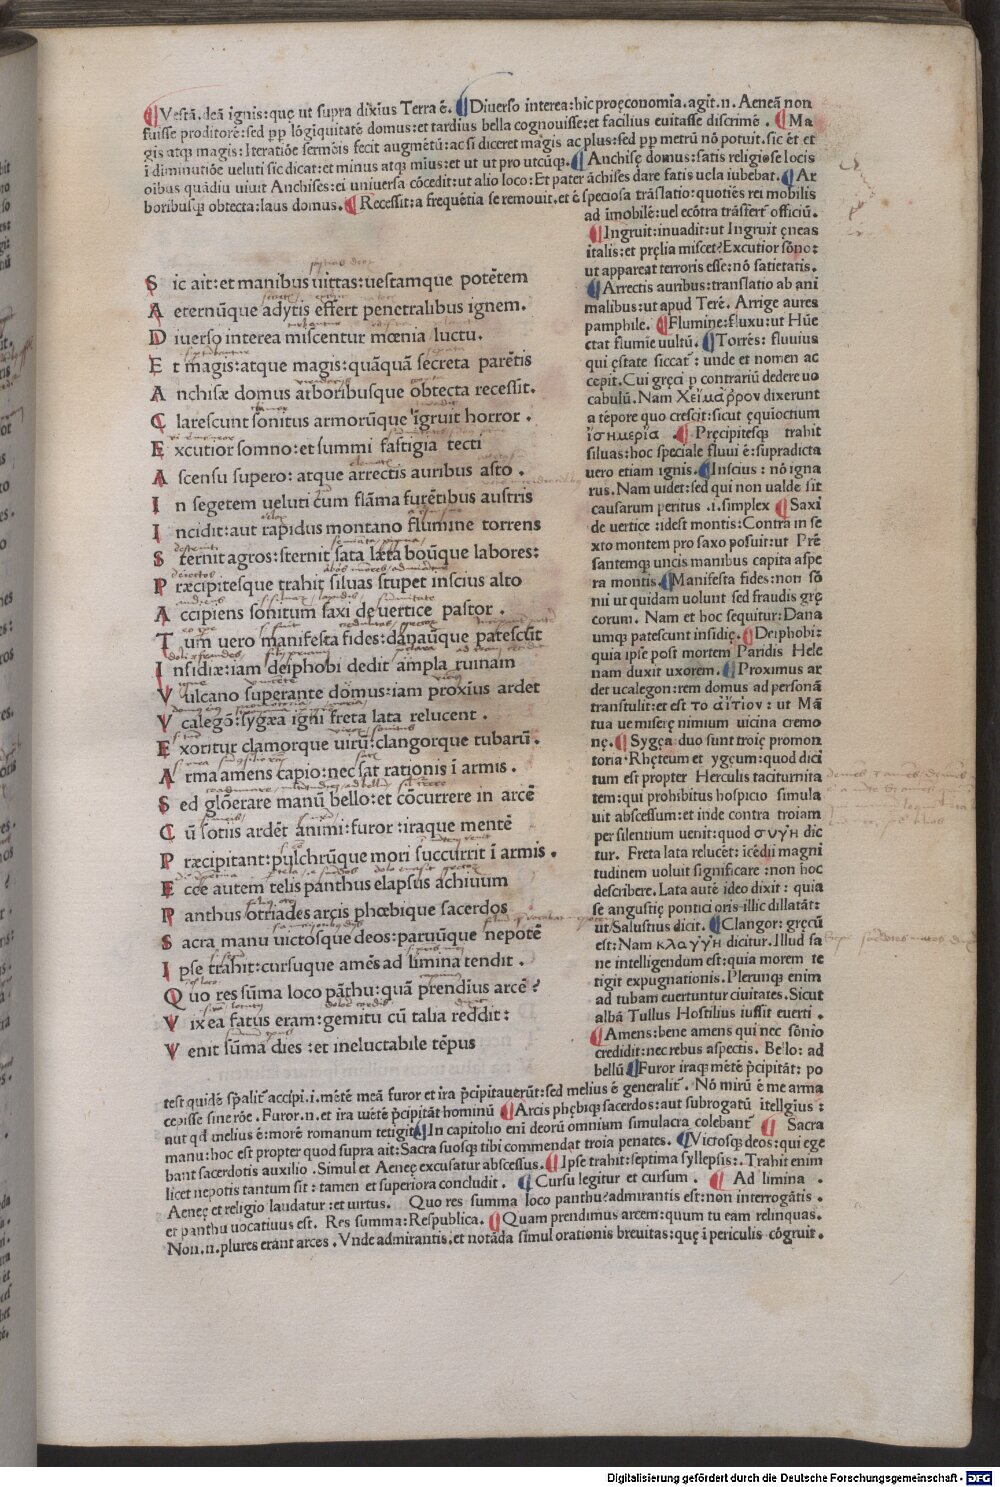 ¶Vestā.deā ignis:quę ut supra diximus Terra ē.¶Diuerso interea:hic proęconomia.agit.n. Aeneā non
fuisse proditorē:sed pp lōgiquitatē domus:et tardius bella cognouisse:et facilius euitasse discrimē . ¶Ma
gis atq magis:Iteratiōe sermōis fecit augmētū:ac si diceret magis ac plus:sed pp metrū nō potuit.sic ēt et
ī diminutiōe veluti sic dicat:et minus atq mius:et ut ut pro utcūq.¶Anchisę domus:satis religiose locis
oibus quādiu uiuit Anchises:ei uniuersa cōcedit:ut alio loco:Et pater āchises dare fatis uela iubebat.¶Ar
boribusq obtecta:laus domus.¶Recessit:a frequētia se remouit.et ē speciosa trāslatio:quotiēs rei mobilis
ad imobilē:uel ecōtra trāsfert officiū.
¶Ingruit:inuadit:ut Ingruit ęneas
italis:et pręlia miscet?Excutior sōno:
ut appareat terroris esse:nō satietatis.
¶Arrectis auribus:translatio ab ani
malibus:ut apud Terē. Arrige aures
pamphile. ¶Flumine:fluxu:ut Hūe
ctat flumie uultū.¶Torrēs: fluuius
qui ęstate siccat : unde et nomen ac
cepit.Cui gręci p contrariū dedere uo
cabulū.Nam χείμαρρον dixerunt
a tēpore quo crescit:sicut ęquioctium
ἰσημερία .¶Pręcipitesq trahit
siluas:hoc speciale fluuī ē:supradicta
uero etiam ignis.¶Inscius : nō igna
rus.Nam uidet:sed qui non ualde sit
causarum peritus .i.simplex ¶Saxi
de uertice :idest montis:Contra in se
xto montem pro saxo posuit:ut Prē
santemq uncis manibus capita aspe
ra montis.¶Manifesta fides:non sō
nii ut quidam uolunt sed fraudis grę
corum. Nam et hoc sequitur:Dana
umq patescunt insidię.¶Deiphobi:
quia ipse post mortem Paridis Hele
nam duxit uxorem.¶Proximus ar
det ucalegon:rem domus ad personā
transtulit:et est το αἴτιον : ut Mā
tua ue miserę nimium uicina cremo
nę.¶Sygęa duo sunt troię promon
toria·Rhęteum et ygęum:quod dici
tum est propter Herculis taciturnita
tem:qui prohibitus hospicio simula
uit abscessum:et inde contra troiam
per silentium uenit:quod σιγη dici
tur. Freta lata relucēt: icēdii magni
tudinem uoluit significare :non hoc
describere.Lata autē ideo dixit : quia
se angustię pontici oris illic dillatāt:
ut Salustius dicit.¶Clangor: gręcū
est:Nam κλαγγη dicitur.Illud sa
ne intelligendum est:quia morem te
tigit expugnationis.Plerunq enim
ad tubam euertuntur ciuitates.Sicut
albā Tullus Hostilius iussit euerti .
¶Amens:bene amens qui nec sōnio
credidit:nec rebus aspectis. Bello: ad
bellū¶Furor iraq mētē p̄cipitāt: po
S ic ait:et manibus uittas:uestamque potētem
A eternūque adytis effert penetralibus ignem.
D iuerso interea miscentur mœnia luctu.
E t magis:atque magis:quāquā secreta parētis
A nchisæ domus arboribusque obtecta recessit.
C larescunt sonitus armorūque īgruit horror .
E xcutior somno:et summi fastigia tecti
A scensu supero: atque arrectis auribus asto .
I n segetem ueluti cum flāma furētibus austris
I ncidit:aut rapidus montano flumine torrens
S ternit agros:sternit sata læta boūque labores:
P ræcipitesque trahit siluas stupet inscius alto
A ccipiens sonitum saxi de uertice pastor .
T um uero manifesta fides:danaūque patescūt
I nsidiæ:iam deiphobi dedit ampla ruinam
V ulcano superante domus:iam proxius ardet
V calegō:sygæa igni freta lata relucent .
E xoritur clamorque uirū:clangorque tubarū.
A rma amens capio:nec sat rationis ī armis .
S ed glōerare manū bello:et cōcurrere in arcē
C ū sotiis ardēt animi:furor :iraque mentē
P ræcipitant:pulchrūque mori succurrit ī armis .
E cce autem telis panthus elapsus achiuum
P anthus otriades arcis phœbique sacerdos
S acra manu uictosque deos:paruūque nepotē
I pse trahit:cursuque amēs ad limina tendit .
Q uo res sūma loco pāthu:quā prendius arcē ?
V ix ea fatus eram:gemitu cū talia reddit:
V enit sūma dies :et ineluctabile tēpus
test quidē sp̄alit accipi.i.mētē meā furor et ira p̄cipitauerūt:sed melius ē generalit . Nō mirū ē me arma
cepisse sine rōe . Furor.n.et ira mētē p̄cipitāt hominū ¶Arcis phębiq sacerdos:aut subrogatū itellgius :
aut qd melius ē:morē romanum tetigit¶In capitolio eni deorū omnium simulacra colebant ¶ Sacra
manu:hoc est propter quod supra ait:Sacra suosq tibi commendat troia penates. ¶Victosq deos:qui ege
bant sacerdotis auxilio .Simul et Aeneę excusatur abscessus.¶Ipse trahit:septima syllepsis:.Trahit enim
licet nepotis tantum sit : tamen et superiora concludit . ¶Cursu legitur et cursum . ¶ Ad limina .
Aeneę et religio laudatur :et uirtus. Quo res summa loco panthu?admirantis est:non interrogātis .
et panthu uocatiuus est. Res summa:Respublica.¶Quam prendimus arcem:quum tu eam relinquas.
Non.n.plures erant arces . Vnde admirantis.et notāda simul orationis breuitas:quę ī periculis cōgruit.
Digitalisierung gefördert durch die Deutsche Forschungsgemeinschaft - DFG